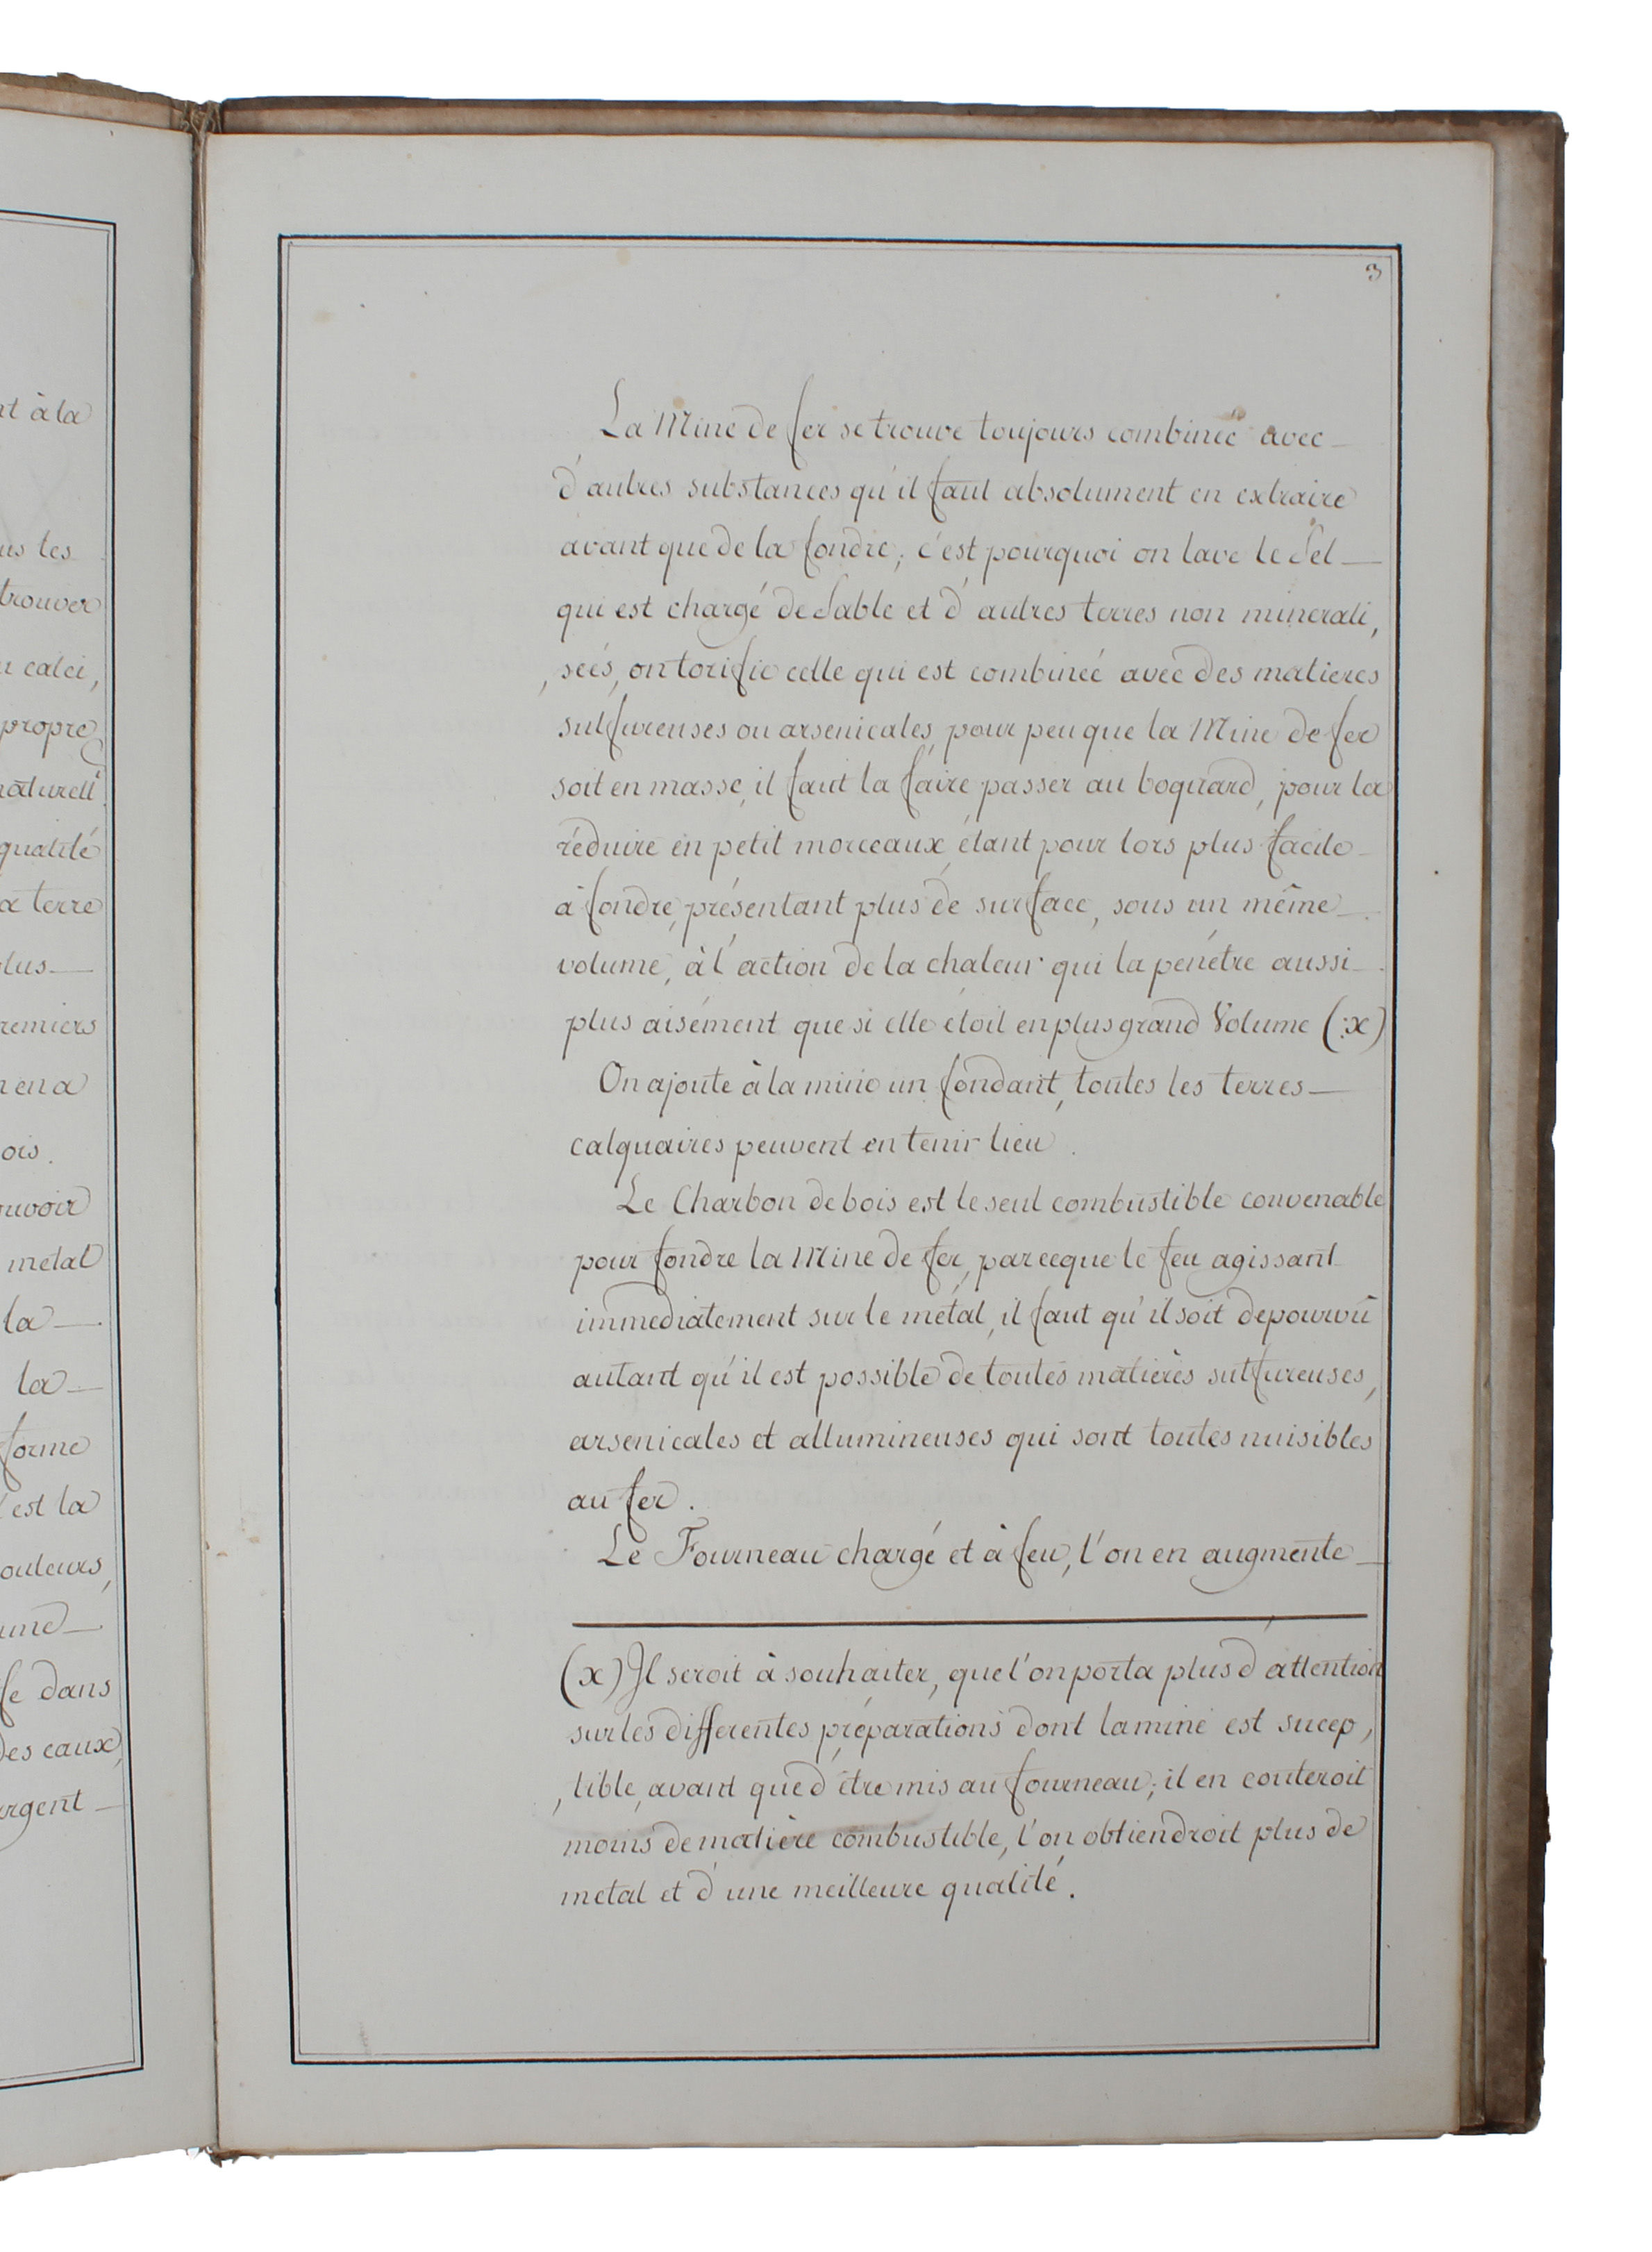 nt à la
us les
trouver
u calci,
propre
naturell
qualité
a terre
lus
remiers
n en a
ois.
ouvoir
metal
la
la
forme
est la
ouleurs,
une
fe dans
des eaux,
argent
3
La Mine de fer se trouve toujours combineé avec
d'autres substances qu'il faut absolument en extraire
avant que de la fondre; c'est pourquoi on lave le Sel
qui est chargé de Sable et d'autres terres non minerali,
,seés, on torifie celle qui est combineé avec des matieres
sulfureuses ou arsenicales, pour peu que la Mine de fer
soit en masse, il faut la faire passer au boquard, pour la
réduire en petit morceaux, étant pour lors plus facile
à fondre, présentant plus de surface, sous un même
volume, à l'action de la chaleur qui la penétre aussi
plus aisément que si elle étoit en plus grand Volume (x)
On ajoute à la mine un fondant, toutes les terres
calquaires peuvent en tenir lieu.
Le Charbon de bois est le seul combustible convenable
pour fondre la Mine de fer, parceque le feu agissant
immediatement sur le métal, il faut qu'il soit depourvû
autant qu'il est possible de toutes matières sulfureuses,
arsenicales et allumineuses qui sont toutes nuisibles
au fer.
Le Fourneau chargé et à feu, l'on en augmente
(x) Il seroit à souhaiter, que l'on porta plus d'attention
sur les differentes préparations dont la mine est sucep,
,tible, avant que d'être mis au fourneau; il en couteroit
moins de matière combustible, l'on obtiendroit plus de
metal et d'une meilleure qualité.